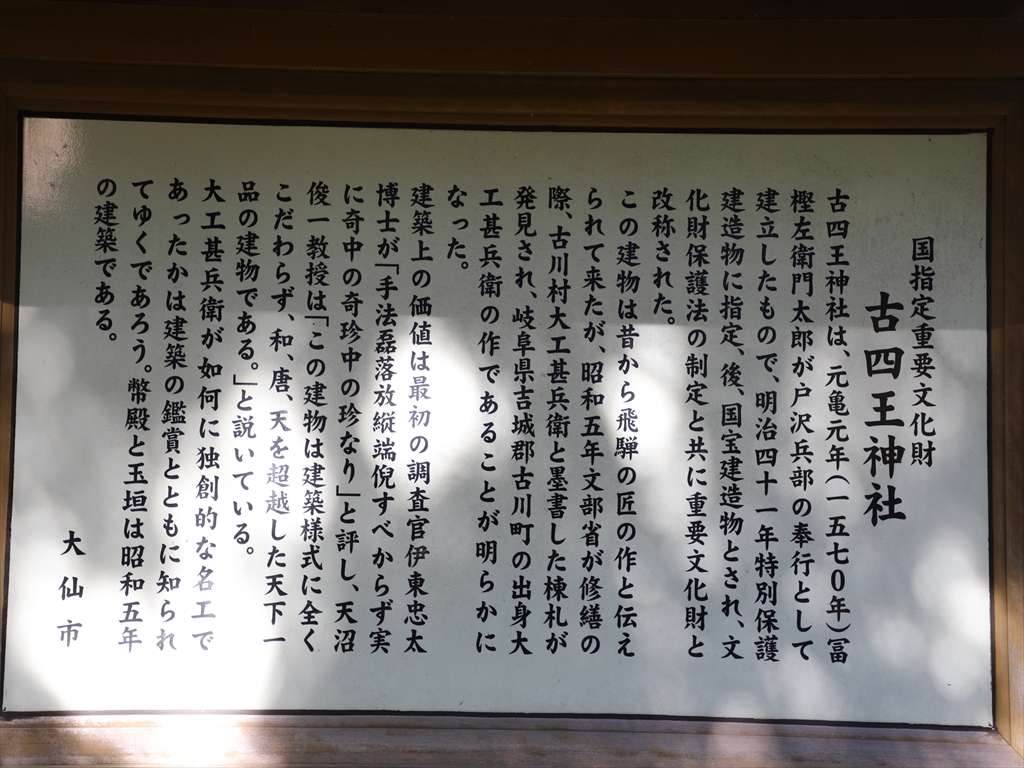 国指定重要文化財
古四王神社
古四王神社は、元亀元年(一五七〇年)冨
樫左衛門太郎が戸沢兵部の奉行として
建立したもので、明治四十一年特別保護
建造物に指定、後、国宝建造物とされ、文
化財保護法の制定と共に重要文化財と
改称された。
この建物は昔から飛騨の匠の作と伝え
られて来たが、昭和五年文部省が修繕の
際、古川村大工甚兵衛と墨書した棟札が
発見され、岐阜県吉城郡古川町の出身大
工甚兵衛の作であることが明らかに
なった。
建築上の価値は最初の調査官伊東忠太
博士が「手法磊落放縦端倪すべからず実
に奇中の奇珍中の珍なり」と評し、天沼
俊一教授は「この建物は建築様式に全く
こだわらず、和、唐、天を超越した天下一
品の建物である。」と説いている。
大工甚兵衛が如何に独創的な名工で
あったかは建築の鑑賞とともに知られ
てゆくであろう。幣殿と玉垣は昭和五年
の建築である。
大仙市